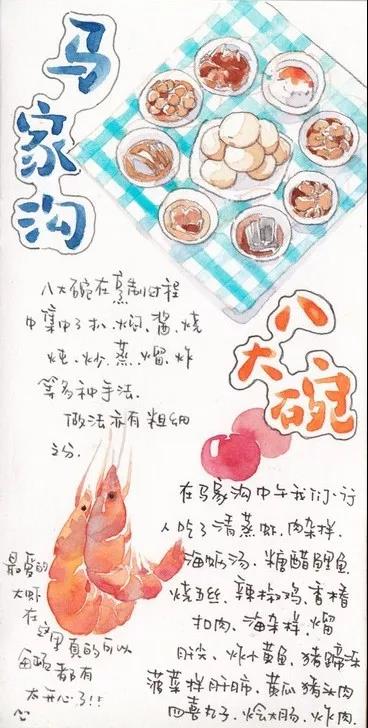 马家沟
八大碗在烹制过程
中集中了扒、焖、酱、烧
炖、炒、蒸、熘、炸
等多种手法.
做法亦有粗细
之分.
八大碗
在马家沟中午我们一行
人吃了清蒸虾.肉杂拌.
海蛎汤、糖醋鲤鱼
烧五丝、辣椒鸡、香椿
扣肉、海杂拌、熘
肝尖、炸小黄鱼、猪蹄冻
菠菜拌肝肺、黄瓜猪头肉
四喜丸子、烩大肠、炸肉.
最爱的
大虾
在
这里真的可以
每顿都有
太开心了!!